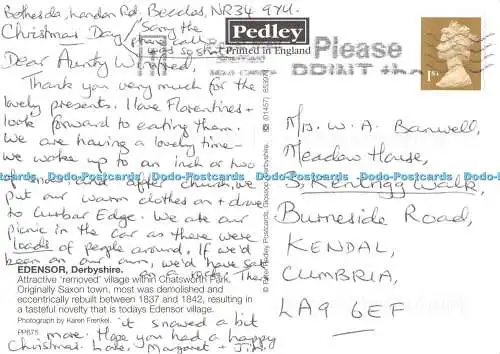 Bethesda, London Rd, Beccles, NR34 9YU.
Christmas Day
(Sorry the
phone call
was so short)
Dear Aunty Winifred,
Thank you very much for the
lovely presents. I love Florentines +
look forward to eating them.
We are having a lovely time –
we woke up to an inch or two
of snow and after church, we
put our warm clothes on + drove
to Curbar Edge. We ate our
picnic in the car as there were
loads of people around. If we'd
been on our own, we'd have sat
on a rock. Then
it snowed a bit
more. Hope you had a happy
Christmas. Love, Margaret + Jim.
EDENSOR, Derbyshire.
Attractive 'removed' village within Chatsworth Park.
Originally Saxon town, most was demolished and
eccentrically rebuilt between 1837 and 1842, resulting in
a tasteful novelty that is todays Edensor village.
Photograph by Karen Frenkel.
PP875
Pedley
Printed in England
Please
PRINT
1ST
Mrs. W. A. Banwell,
Meadow House,
5, Kentrigg Walk,
Burneside Road,
KENDAL,
CUMBRIA,
LA9 6EF
Dodo-Postcards Dodo-Postcards Dodo-Postcards Dodo-Postcards Dodo-Postcards